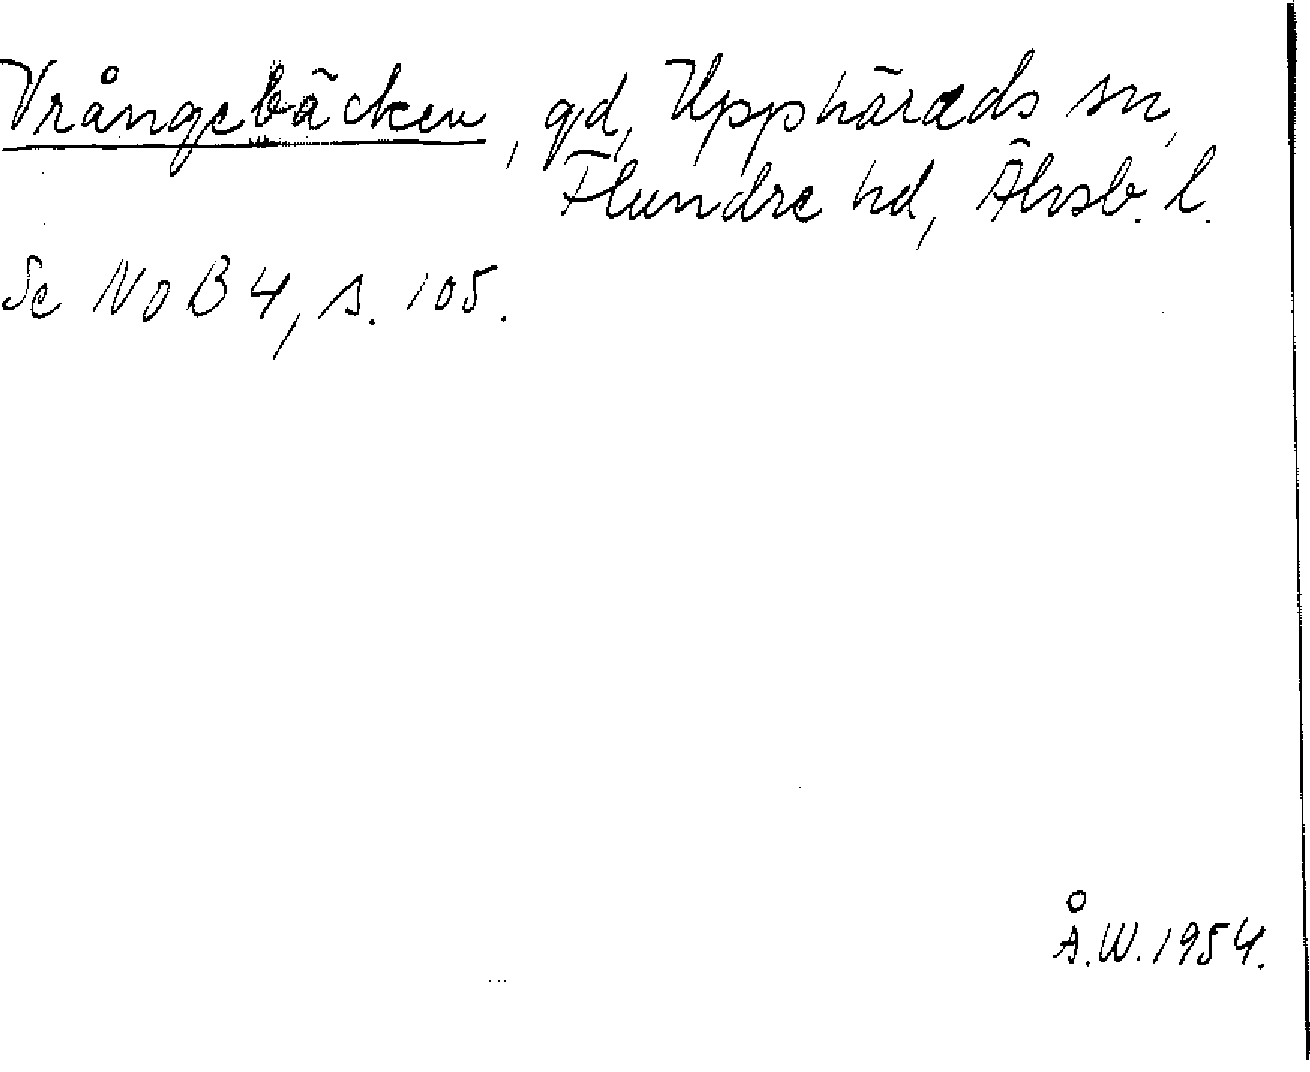 Vrångebäcken, gd, Upphärads sn,
Flundre hd, Älvsb. l.
Se NoB 4, s. 105.
Å.W. 1954.